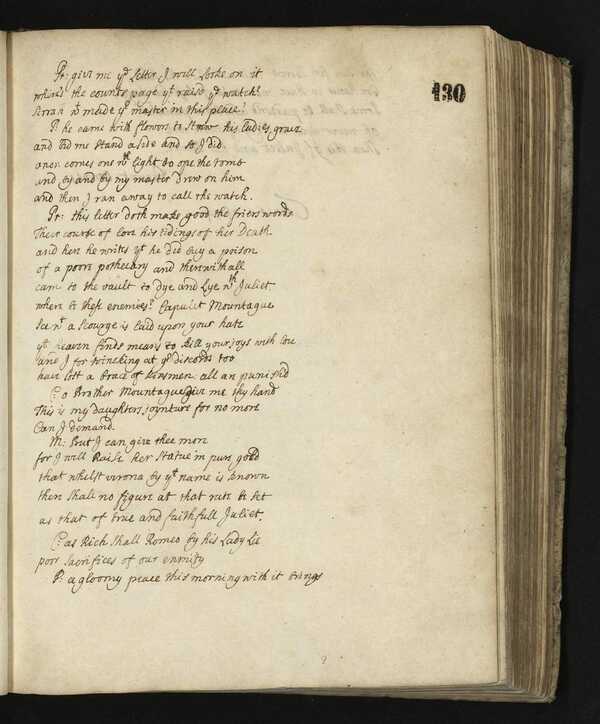 130
Pr: give me yͤ Letter I will looke on it
where's the counts page yͭ raisd yͤ watch?
sirrah wͭ made yͬ master in this place?
P: he came with flowers to strew his ladies grave
and bid me stand aside and so I did
anon comes one wͭʰ light to ope the tomb
and by and by my master drew on him
and then I ran away to call the watch.
Pr: this letter doth make good the friers words
Their course of love his tidings of her Death
and here he writes yͭ he did buy a poison
of a poore pothecary and therewithall
came to the vault to dye and Lye wͭʰ Juliet
where be these enemies? Capulet Mountague
See wͭ a Scourge is laid upon your hate
yͭ heaven finds means to kill your joys with love
and I for winking at yͬ discords too
have lost a brace of kinsmen all are punishd
C: o Brother Mountague give me thy hand
This is my daughters joynture for no more
Can I demand.
M: But I can give thee more
for I will Raise her Statue in pure gold
that whilst verona by yͭ name is known
there shall no figure at that rate be set
as that of true and faithfull Juliet.
C: as Rich shall Romeo by his Lady Lie
poor Sacrifices of our enmity
P: a gloomy peace this morning with it brings